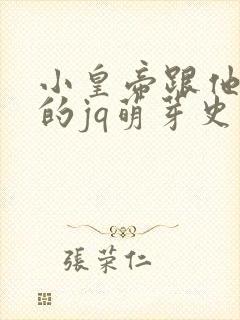 小皇帝跟他
的jq萌芽史
張荣仁